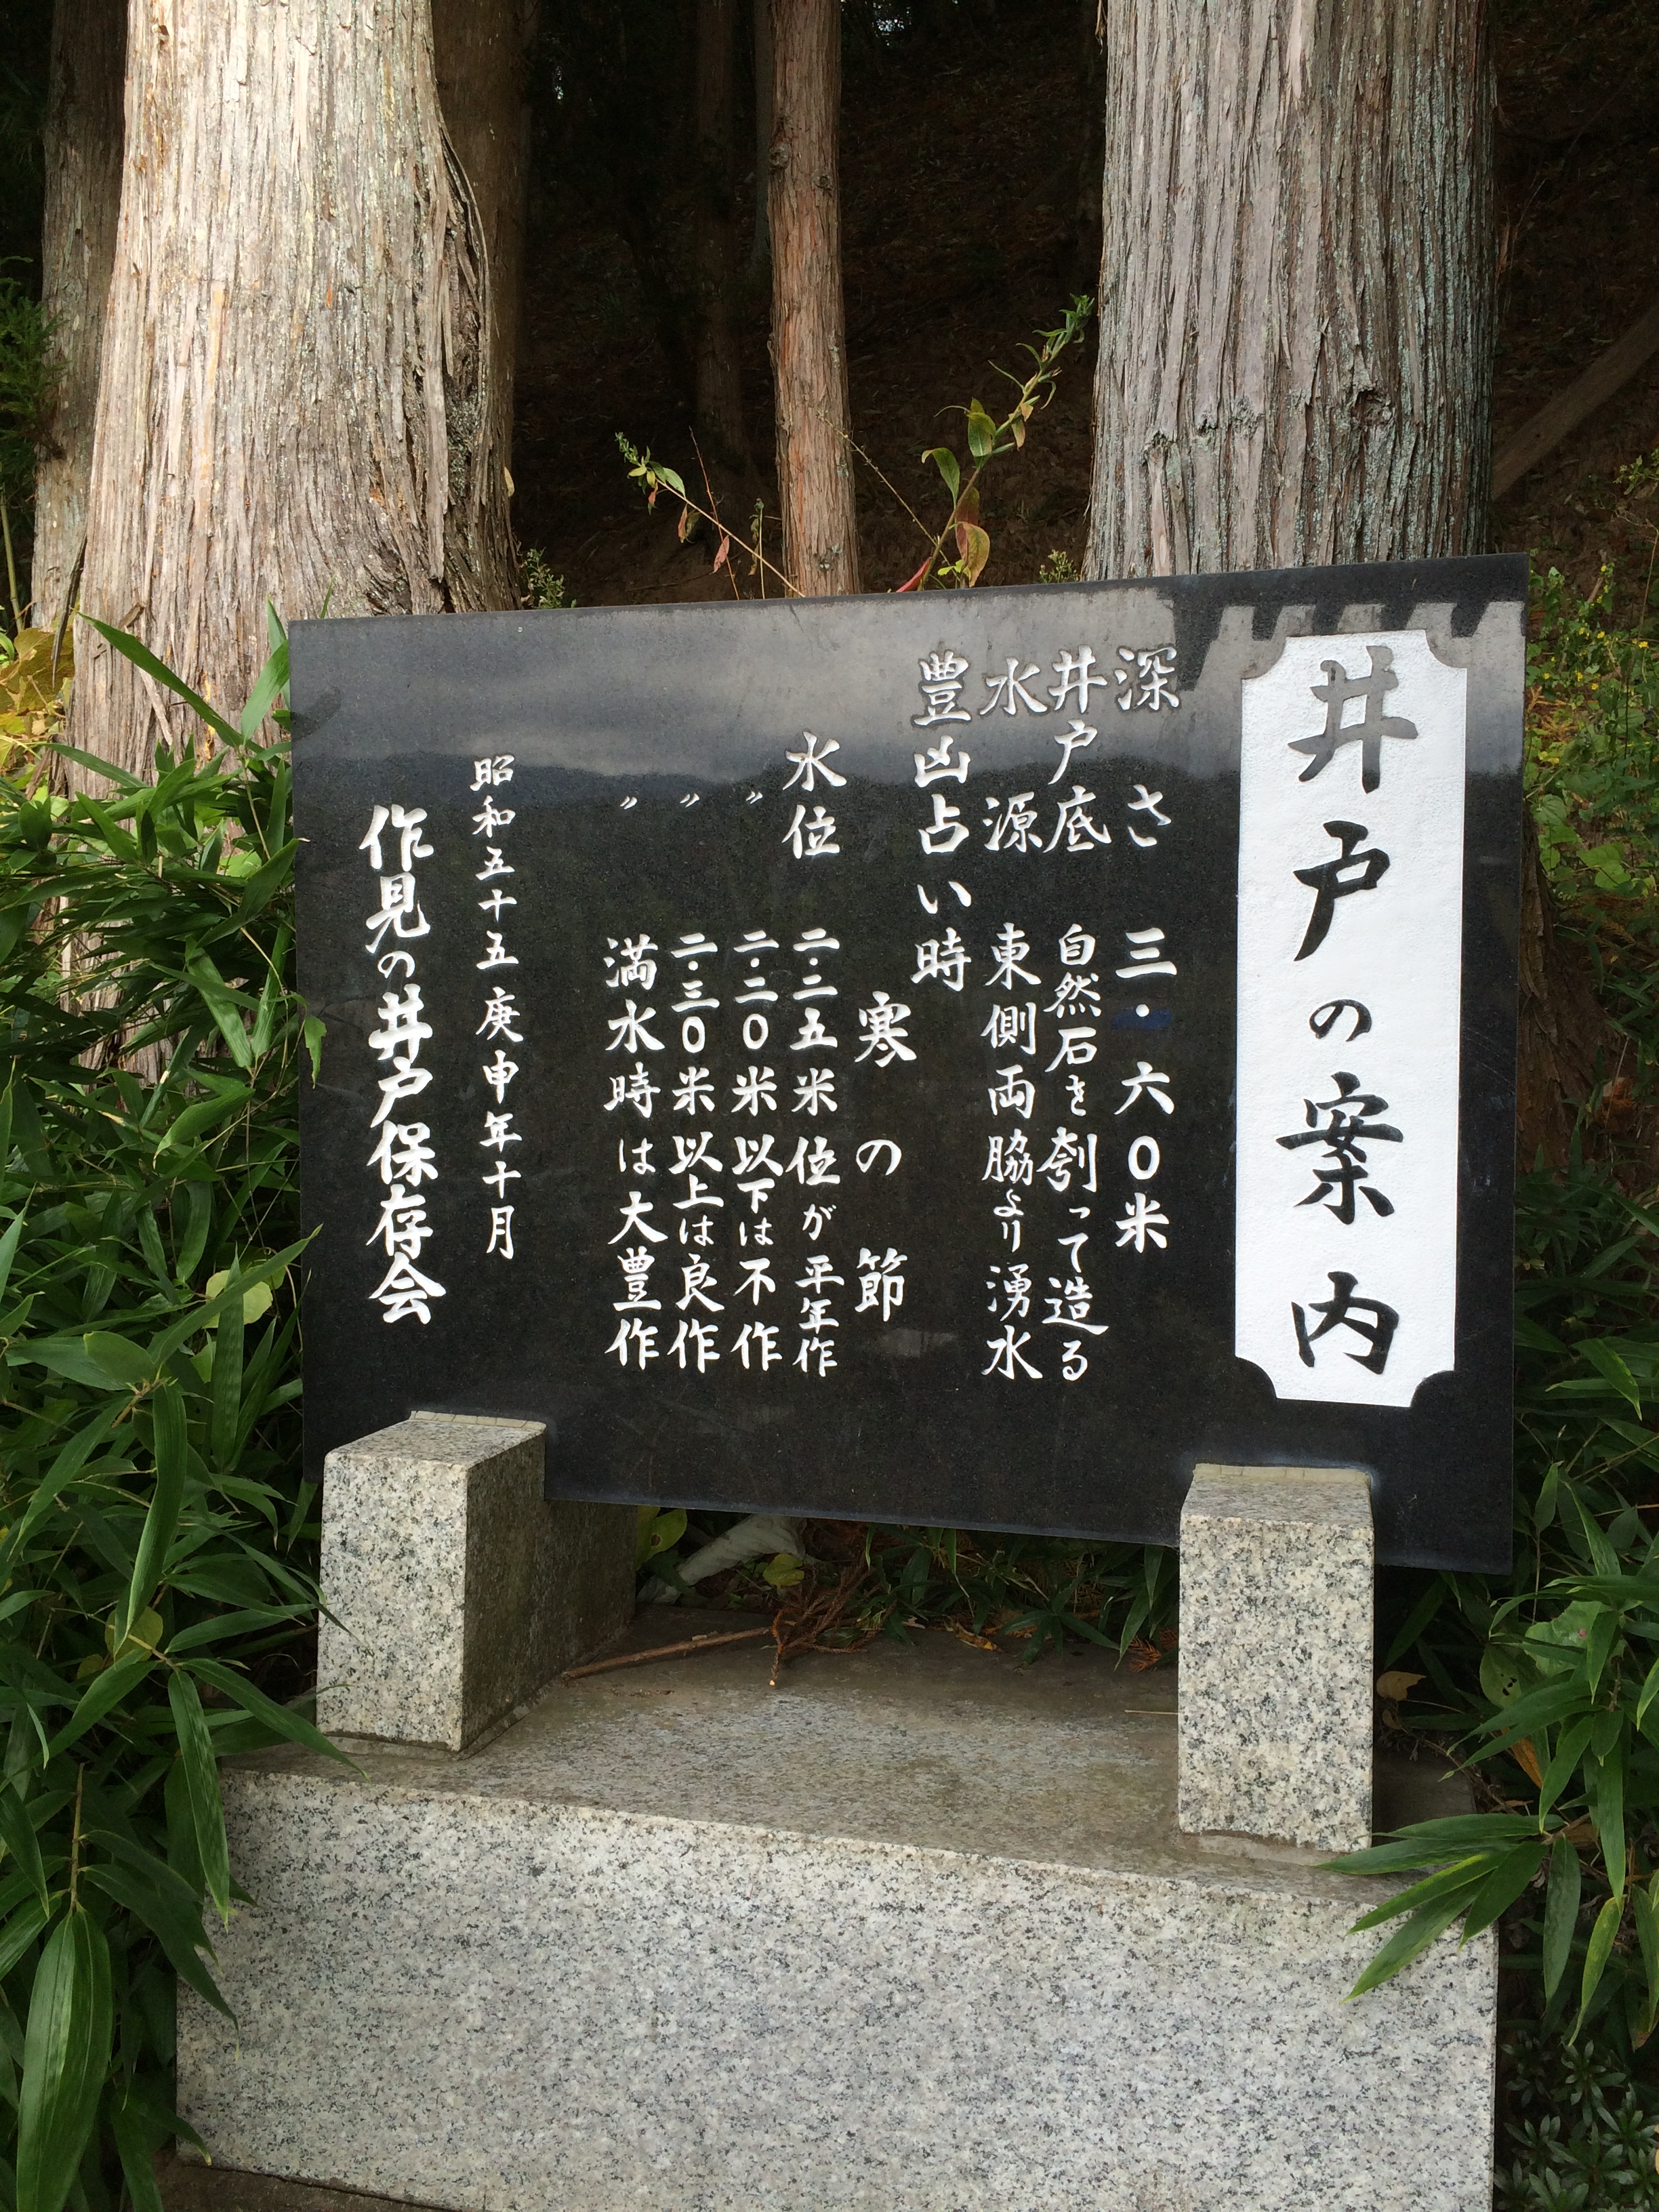 井戸の案内
深さ 三・六〇米
井戸底 自然石を刳って造る
水源 東側両脇より湧水
豊凶占い時
寒の節
水位 二・二五米位が平年作
〃 二・二〇米以下は不作
〃 二・三〇米以上は良作
〃 満水時は大豊作
昭和五十五庚申年十月
作見の井戸保存会